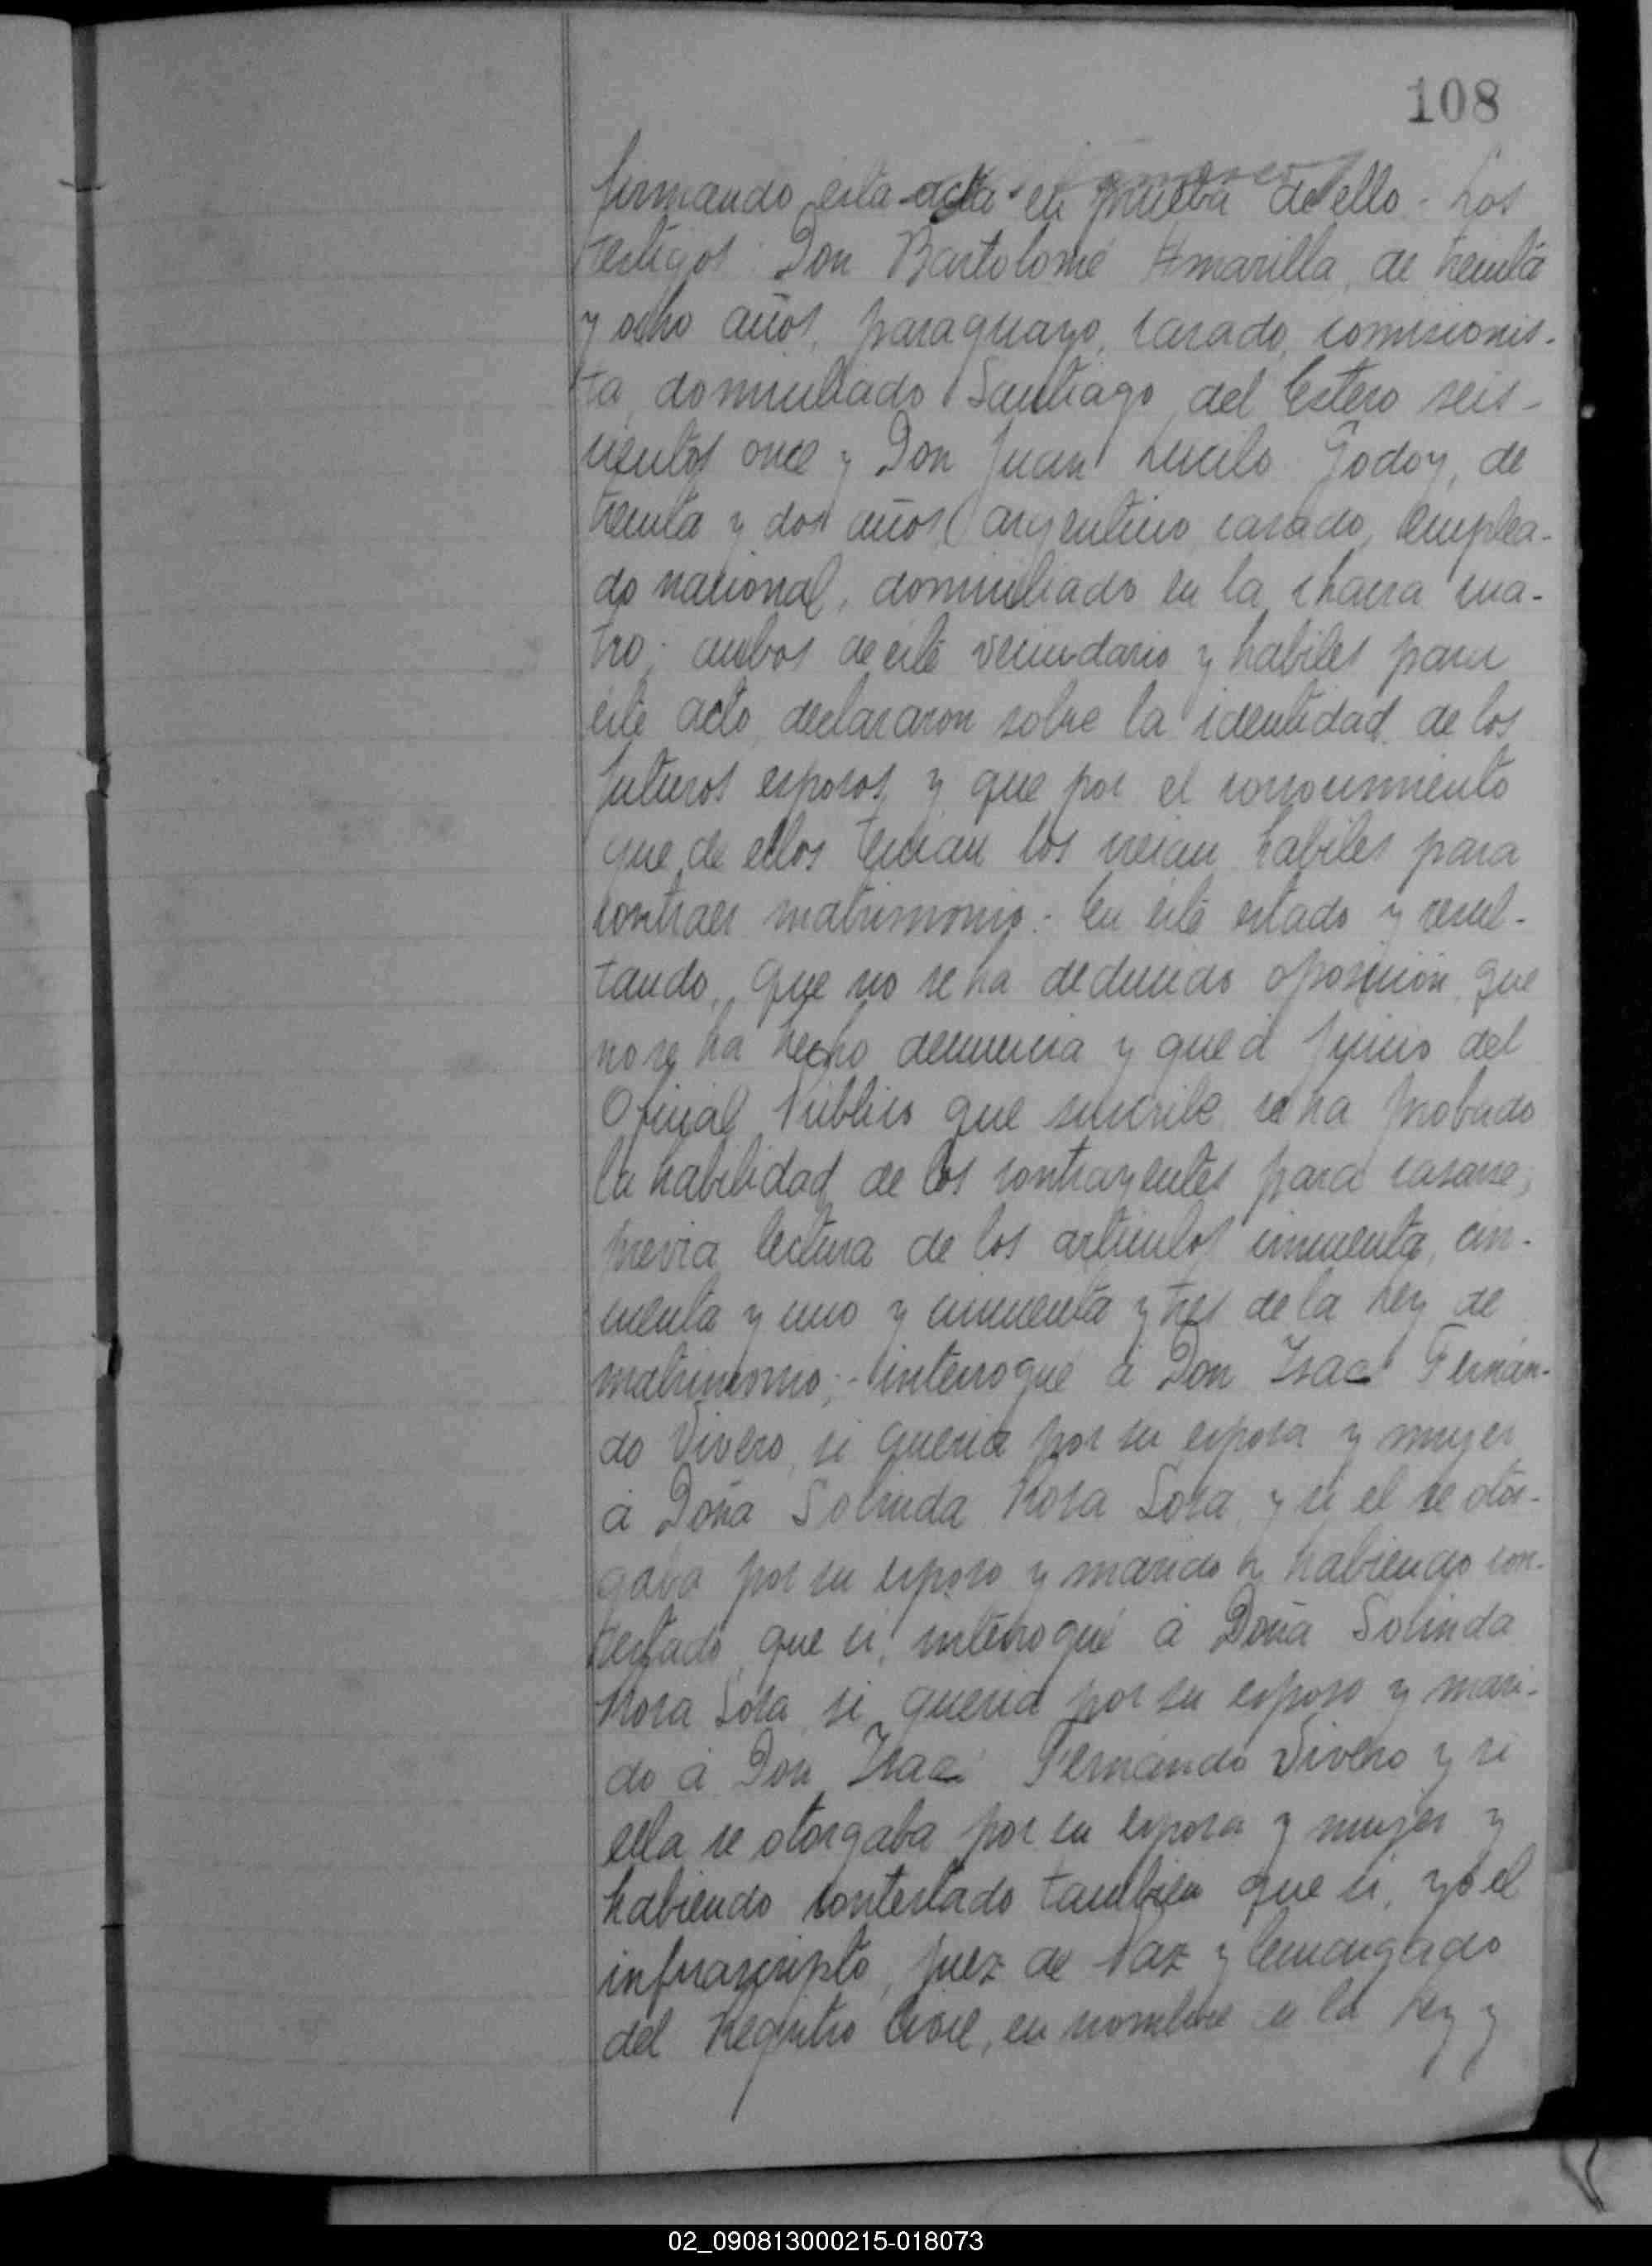 108
firmando esta acta en prueba de ello - Los
testigos: Don Bartolomé Amarilla, de treinta
y ocho años, paraguayo, casado, comisionis-
ta, domiciliado Santiago del Estero seis-
cientos once y Don Juan Lucilo Godoy, de
treinta y dos años, argentino, casado, emplea-
do nacional, domiciliado en la chacra cua-
tro; ambos de este vecindario y habiles para
este acto, declararon sobre la identidad de los
futuros esposos y que por el conocimiento
que de ellos tenian los creian habiles para
contraer matrimonio.- En este estado y resul-
tando, que no se ha deducido oposición, que
no se ha hecho denuncia y que á juicio del
Oficial Público que suscribe se ha probado
la habilidad de los contrayentes para casarse,
previa lectura de los articulos cincuenta, cin-
cuenta y uno y cincuenta y tres de la Ley de
matrimonio; - interrogué á Don Isac Fernan-
do Vivero, si queria por su esposa y mujer
á Doña Solinda Rosa Sosa, y si el se otor-
gava por su esposo y marido y habiendo con-
testado que si, interrogué á Doña Solinda
Rosa Sosa si queria por su esposo y mari-
do á Don Isac Fernando Vivero y si
ella se otorgaba por su esposa y mujer y
habiendo contestado tambien que si, yo el
infrascripto, Juez de Paz y Encargado
del Registro Civil, en nombre de la Ley y
02_090813000215-018073